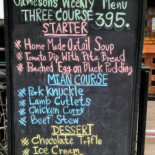 Jamesons Weekly Menu
THREE COURSE 395.
STARTER
* Home Made Oxtail Soup
* Tomato Dip With Pita Bread
* Poached Egg on Black Pudding
MIAN COURSE
* Pork Knuckle
* Lamb Cutlets
* Chicken Curry
* Beef Stew
DESSERT
* Chocolate Trifle
* Ice Cream